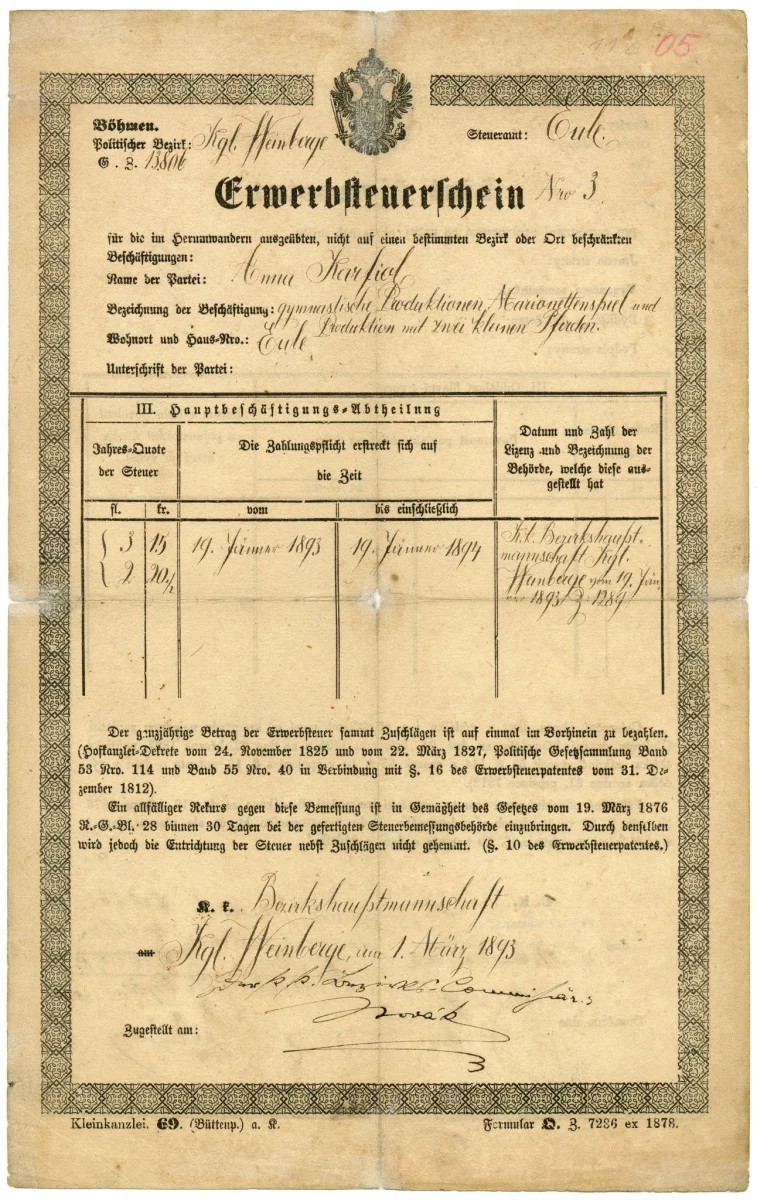 05
Böhmen.
Politischer Bezirk: Kgl. Weinberge
Steueramt: Eule.
G. Z. 13806
Erwerbsteuerschein Nro 3.
für die im Herumwandern ausgeübten, nicht auf einen bestimmten Bezirk oder Ort beschränkten
Beschäftigungen:
Name der Partei: Anna Karfiol
Bezeichnung der Beschäftigung: gymnastische Produktionen, Marionettenspiel und
Produktion mit zwei kleinen Pferden.
Wohnort und Haus-Nro.: Eule
Unterschrift der Partei:
III. Hauptbeschäftigungs-Abtheilung
Jahres-Quote
der Steuer
Die Zahlungspflicht erstreckt sich auf
die Zeit
Datum und Zahl der
Lizenz und Bezeichnung der
Behörde, welche diese aus-
gestellt hat
fl. kr. vom bis einschließlich
3 15 19. Jänner 1893 19. Jänner 1894
2 20 1/2
K.k. Bezirkshaupt-
mannschaft Kgl.
Weinberge vom 19. Jän-
ner 1893 Z. 1289
Der ganzjährige Betrag der Erwerbsteuer sammt Zuschlägen ist auf einmal im Vorhinein zu bezahlen.
(Hofkanzlei-Dekrete vom 24. November 1825 und vom 22. März 1827, Politische Gesetzsammlung Band
53 Nro. 114 und Band 55 Nro. 40 in Verbindung mit §. 16 des Erwerbsteuerpatentes vom 31. De-
zember 1812).
Ein allfälliger Rekurs gegen diese Bemessung ist in Gemäßheit des Gesetzes vom 19. März 1876
R.-G.-Bl. 28 binnen 30 Tagen bei der gefertigten Steuerbemessungsbehörde einzubringen. Durch denselben
wird jedoch die Entrichtung der Steuer nebst Zuschlägen nicht gehemmt. (§. 10 des Erwerbsteuerpatentes.)
K. k. Bezirkshauptmannschaft
am Kgl. Weinberge, am 1. März 1893
Der k. k. Bezirks-Commissär:
Novák
Zugestellt am:
Kleinkanzlei. 69. (Büttenp.) a. K.
Formular Q. Z. 7286 ex 1878.